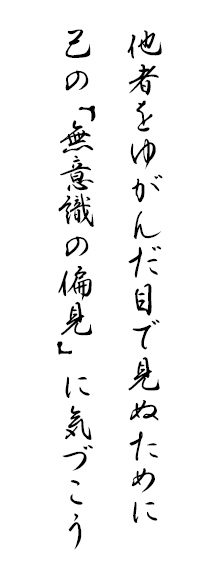 他者をゆがんだ目で見ぬために
己の『無意識の偏見』に気づこう